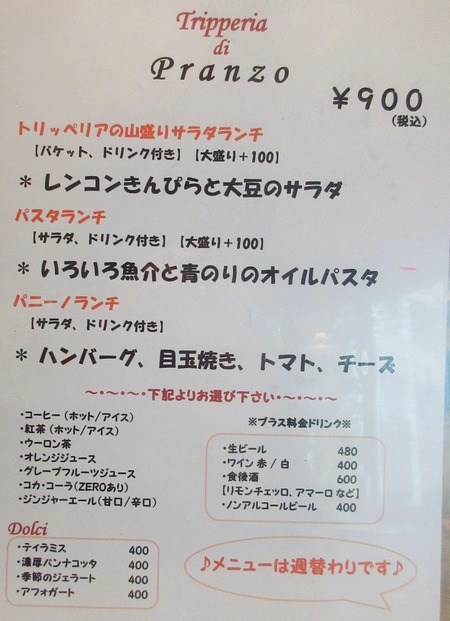 Tripperia
di
Pranzo
￥900
(税込)
トリッペリアの山盛りサラダランチ
【バケット、ドリンク付き】【大盛り+100】
* レンコンきんぴらと大豆のサラダ
パスタランチ
【サラダ、ドリンク付き】【大盛り+100】
* いろいろ魚介と青のりのオイルパスタ
パニーノランチ
【サラダ、ドリンク付き】
* ハンバーグ、目玉焼き、トマト、チーズ
～・～・～・下記よりお選び下さい・～・～・～
・コーヒー(ホット/アイス)
・紅茶(ホット/アイス)
・ウーロン茶
・オレンジジュース
・グレープフルーツジュース
・コカ・コーラ(ZEROあり)
・ジンジャーエール(甘口/辛口)
※プラス料金ドリンク※
・生ビール 480
・ワイン 赤 / 白 400
・食後酒 600
【リモンチェッロ、アマーロ など】
・ノンアルコールビール 400
Dolci
・テイラミス 400
・濃厚パンナコッタ 400
・季節のジェラート 400
・アフォガート 400
♪メニューは週替わりです♪